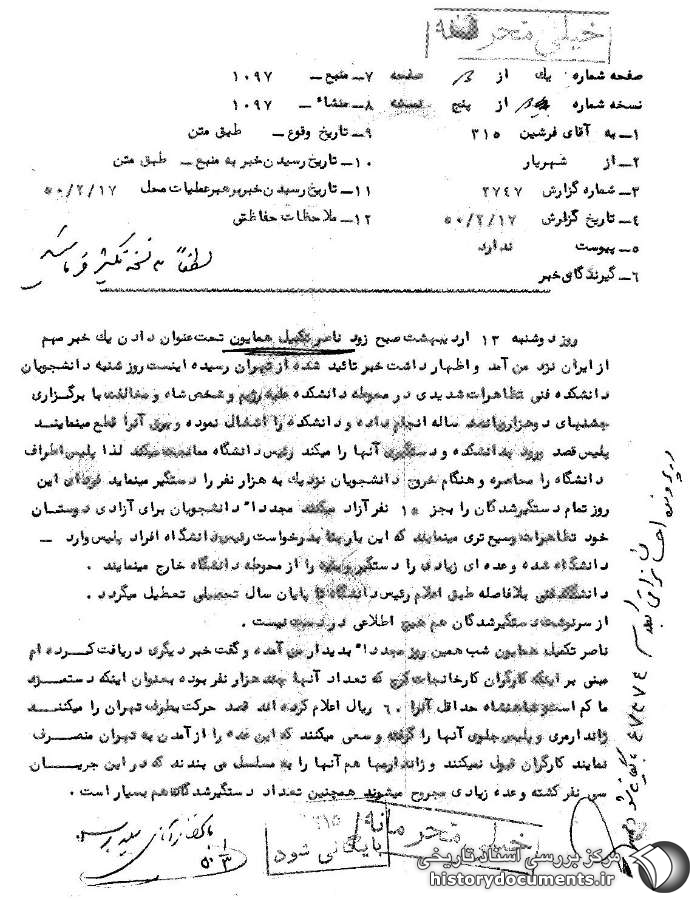 خیلی محرمانه
صفحه شماره یک از صفحه
نسخه شماره از پنج نسخه
۱ـ به آقای فرشین ۳۱۵
۲ـ از شهریار
۳ـ شماره گزارش ۲۷۴۷
۴ـ تاریخ گزارش ۵۰/۲/۱۷
۵ـ پیوست ندارد
۶ـ گیرندگان خبر
۷ـ منبع ـ ۱۰۹۷
۸ـ منشاء ـ ۱۰۹۷
۹ـ تاریخ وقوع ـ طبق متن
۱۰ـ تاریخ رسیدن خبر به منبع ـ طبق متن
۱۱ـ تاریخ رسیدن خبر برهبر عملیات محل ۵۰/۲/۱۷
۱۲ـ ملاحظات حفاظتی
لطفاً نسخه تکثیر فرمائید
روز دوشنبه ۱۳ اردیبهشت صبح زود ناصر تکمیل همایون تحت عنوان دادن یك خبر مهم
از ایران نزد من آمد و اظهار داشت خبر تائید شده از تهران رسیده اینست روز شنبه دانشجویان
دانشکده فنی تظاهرات شدیدی در محوطه دانشکده علیه رژیم و شخص شاه و مخالفت با برگزاری
جشنهای دوهزار پانصد ساله انجام داده و دانشکده را اشغال نموده و برق آنرا قطع مینمایند
پلیس قصد ورود بدانشکده و دستگیری آنها را میکند رئیس دانشگاه ممانعت میکند لذا پلیس اطراف
دانشگاه را محاصره و هنگام خروج دانشجویان نزدیك به هزار نفر را دستگیر مینماید فردای این
روز تمام دستگیرشدگان را بجز ۱۵ نفر آزاد میکنند مجدداً دانشجویان برای آزادی دوستان
خود تظاهرات وسیع تری مینمایند که این بار بنا بدرخواست رئیس دانشگاه افراد پلیس وارد ـ
دانشگاه شده و عده ای زیادی را دستگیر و بقیه را از محوطه دانشگاه خارج مینمایند .
دانشکده فنی بلافاصله طبق اعلام رئیس دانشگاه تا پایان سال تحصیلی تعطیل میگردد .
از سرنوشت دستگیرشدگان هم هیچ اطلاعی در دست نیست .
ناصر تکمیل همایون شب همین روز مجدداً بدیدار من آمده و گفت خبر دیگری دریافت کرده ام
مبنی بر اینکه کارگران کارخانجات کرج که تعداد آنها چند هزار نفر بوده بعنوان اینکه دستمزد
ما کم است و شاهنشاه حداقل آنرا ۶۰ ریال اعلام کرده اند قصد حرکت بطرف تهران را میکنند
ژاندارمری و پلیس جلوی آنها را گرفته و سعی میکنند که این عده را از آمدن به تهران منصرف
نمایند کارگران قبول نمیکنند و ژاندارمها هم آنها را به مسلسل می بندند که در این جریان
سی نفر کشته و عده زیادی مجروح میشوند همچنین تعداد دستگیرشدگان هم بسیار است .
۳۱۵
بایگانی شود
خیلی محرمانه
مرکز بررسی اسناد تاریخی
historydocuments.ir